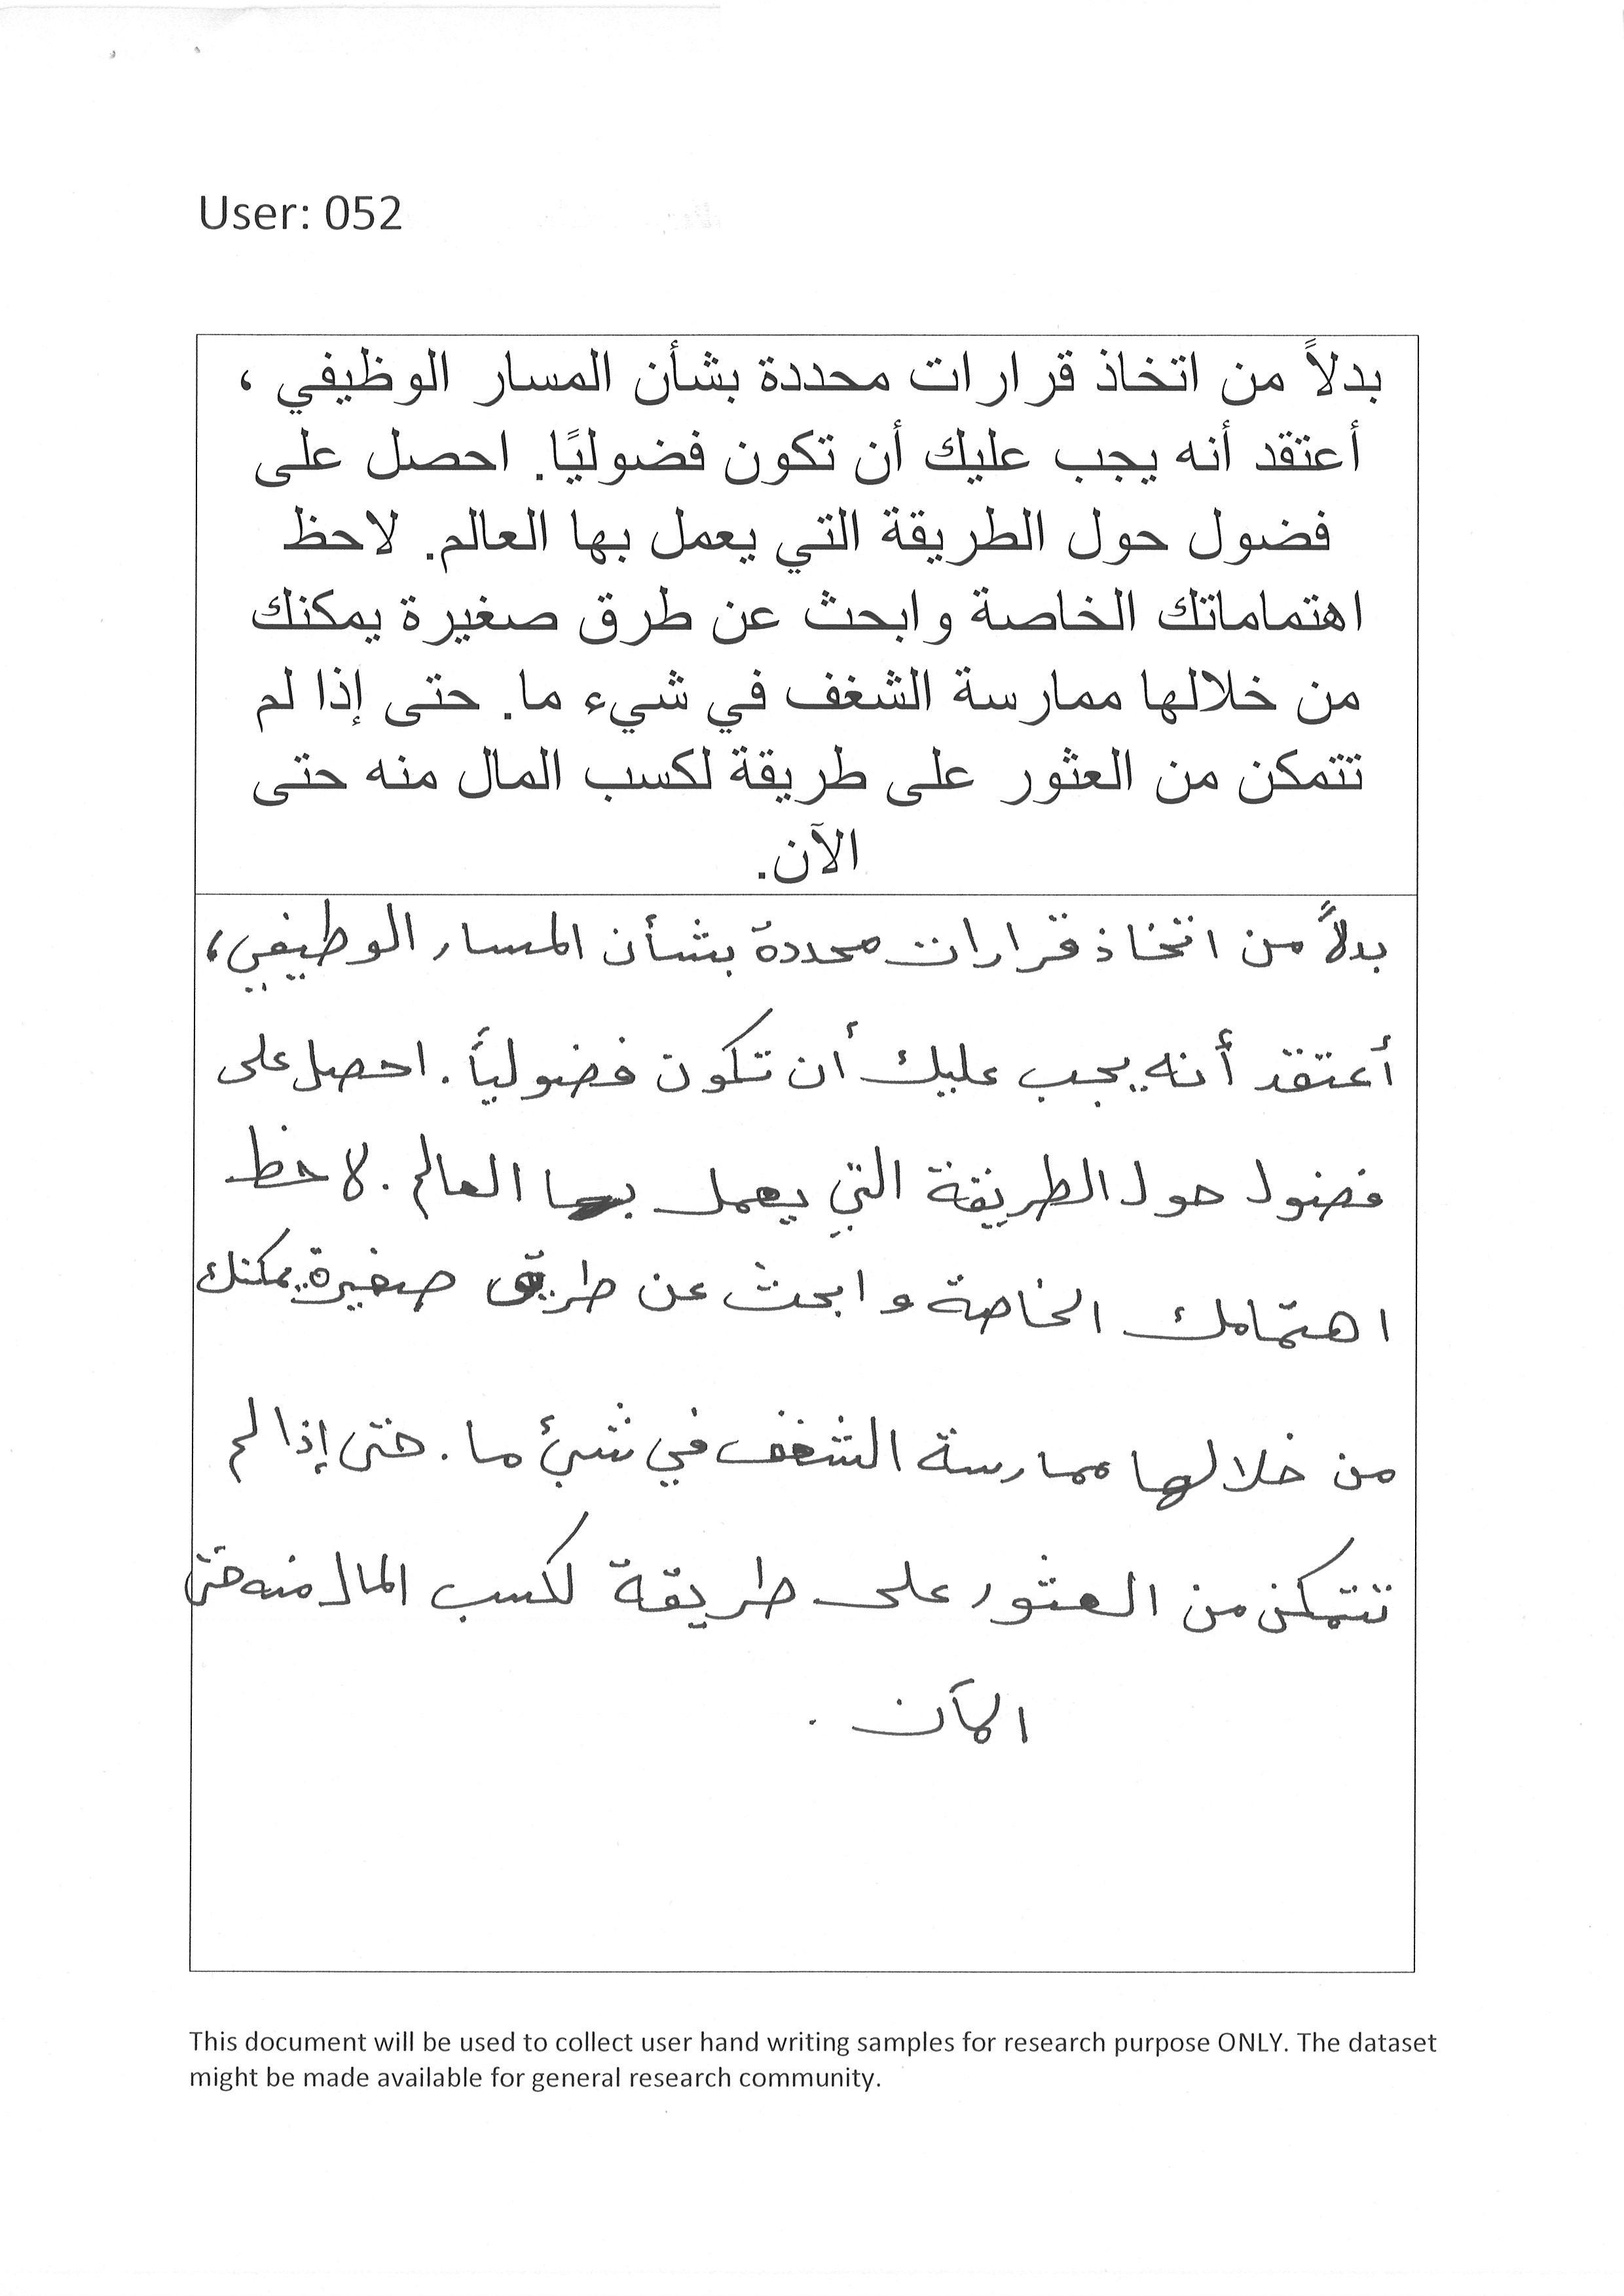 User: 052
بدلاً من اتخاذ قرارات محددة بشأن المسار الوظيفي ،
أعتقد أنه يجب عليك أن تكون فضوليًا. احصل على
فضول حول الطريقة التي يعمل بها العالم. لاحظ
اهتماماتك الخاصة وابحث عن طرق صغيرة يمكنك
من خلالها ممارسة الشغف في شيء ما. حتى إذا لم
تتمكن من العثور على طريقة لكسب المال منه حتى
الآن.
بدلاً من اتخاذ قرارات محددة بشأن المسار الوظيفي،
أعتقد أنه يجب عليك أن تكون فضولياً. احصل على
فضول حول الطريقة التي يعمل بها العالم. لاحظ
اهتمامك الخاصة وابحث عن طريق صغيرة يمكنك
من خلالها ممارسة الشغف في شيئ ما. حتى إذا لم
تتمكن من العثور على طريقة لكسب المال منه حتى
الآن.
This document will be used to collect user hand writing samples for research purpose ONLY. The dataset
might be made available for general research community.